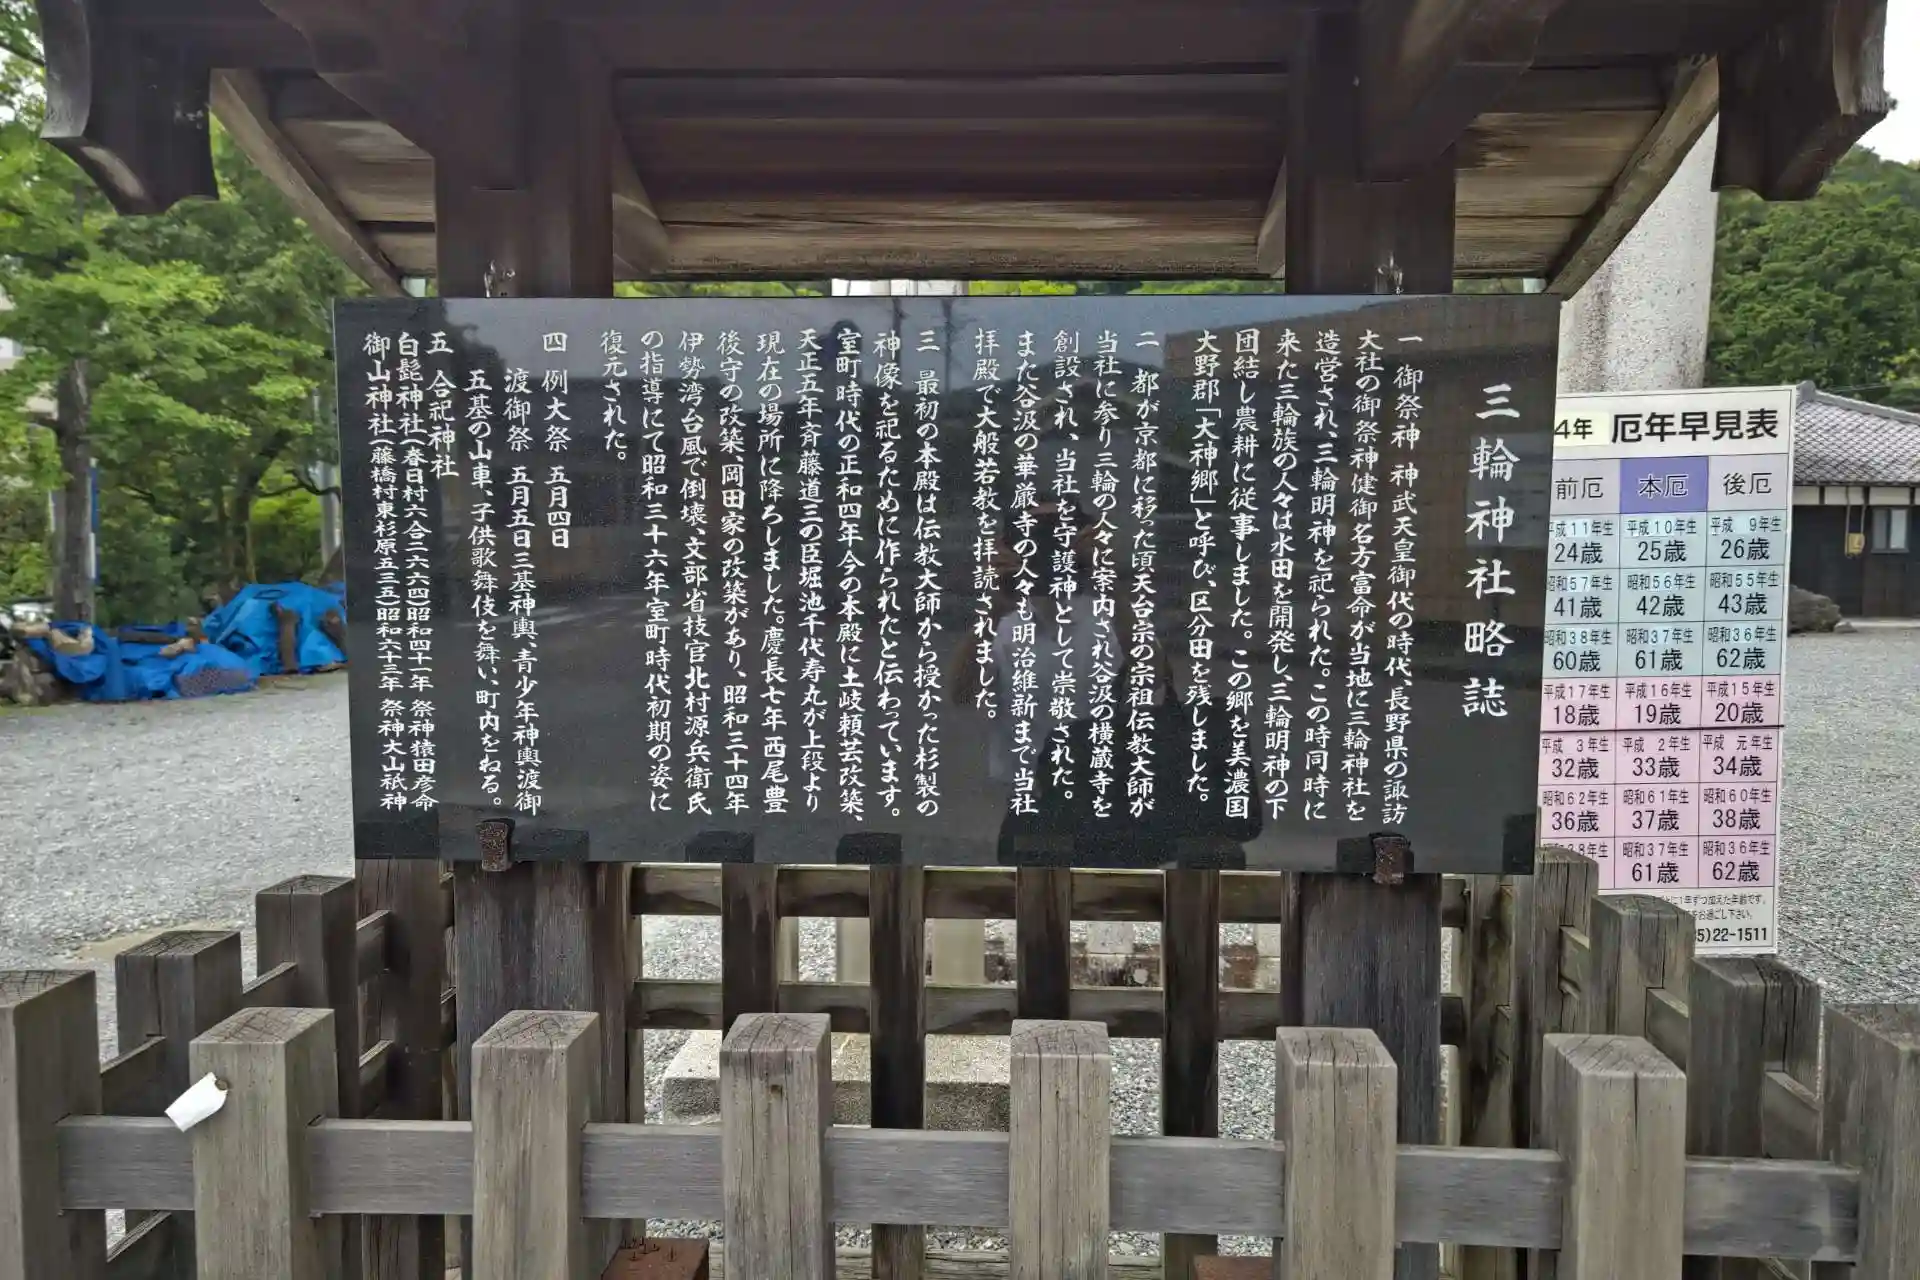 三輪神社略誌
一 御祭神 神武天皇御代の時代、長野県の諏訪
大社の御祭神健御名方富命が当地に三輪神社を
造営され、三輪明神を祀られた。この時同時に
来た三輪族の人々は水田を開発し、三輪明神の下
団結し農耕に従事しました。この郷を美濃国
大野郡「大神郷」と呼び、区分田を残しました。
二 都が京都に移った頃天台宗の宗祖伝教大師が
当社に参り三輪の人々に案内され谷汲の横蔵寺を
創設され、当社を守護神として崇敬された。
また谷汲の華厳寺の人々も明治維新まで当社
拝殿で大般若教を拝読されました。
三 最初の本殿は伝教大師から授かった杉製の
神像を祀るために作られたと伝わっています。
室町時代の正和四年今の本殿に土岐頼芸改築、
天正五年斉藤道三の臣堀池千代寿丸が上段より
現在の場所に降ろしました。慶長七年西尾豊
後守の改築、岡田家の改築があり、昭和三十四年
伊勢湾台風で倒壊、文部省技官北村源兵衛氏
の指導にて昭和三十六年室町時代初期の姿に
復元された。
四 例大祭 五月四日
渡御祭 五月五日三基神輿、青少年神輿渡御
五基の山車、子供歌舞伎を舞い、町内をねる。
五 合祀神社
白髭神社(春日村六合二六六四)昭和四十一年 祭神猿田彦命
御山神社(藤橋村東杉原五三五)昭和六十三年 祭神大山祇神
4年 厄年早見表
前厄 本厄 後厄
平成11年生 平成10年生 平成 9年生
24歳 25歳 26歳
昭和57年生 昭和56年生 昭和55年生
41歳 42歳 43歳
昭和38年生 昭和37年生 昭和36年生
60歳 61歳 62歳
平成17年生 平成16年生 平成15年生
18歳 19歳 20歳
平成 3年生 平成 2年生 平成 元年生
32歳 33歳 34歳
昭和62年生 昭和61年生 昭和60年生
36歳 37歳 38歳
38年生 昭和37年生 昭和36年生
61歳 62歳
に1年ずつ加えた年齢です。
をお過ごし下さい。
5)22-1511